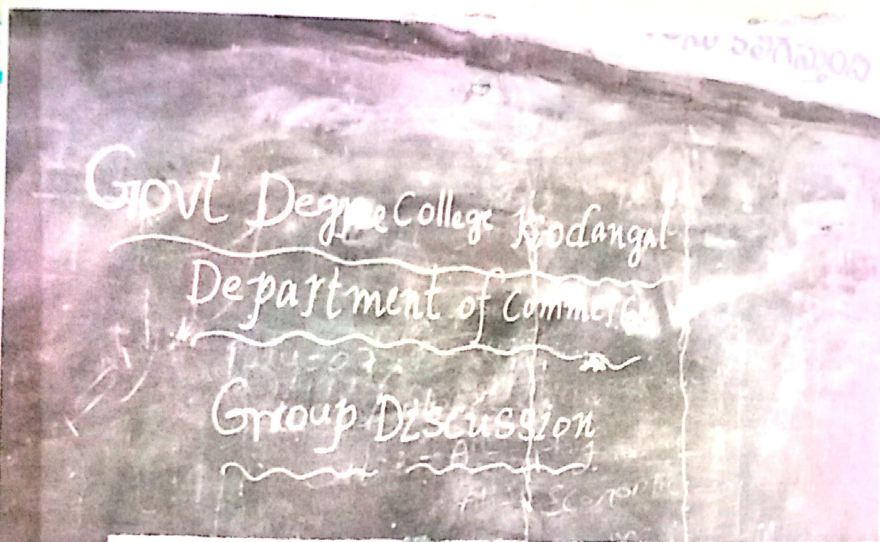 Govt Degree College Kodangal
Department of Commerce
Group Discussion